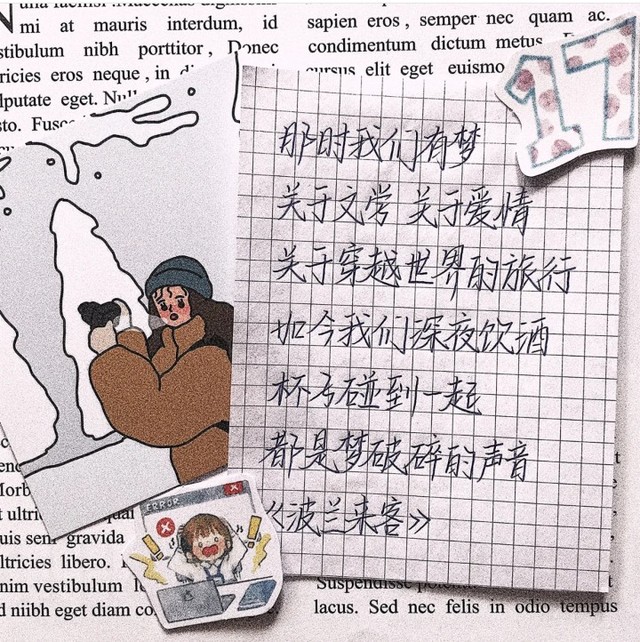 mi at mauris interdum, id
stibulum nibh porttitor, Donec
ricies eros neque, in
lputate eget.
sto.
sapien eros, semper nec quam ac.
condimentum dictum metus
cursus elit eget euismo
17
那时我们有梦
关于文学 关于爱情
关于穿越世界的旅行
如今我们深夜饮酒
杯子碰到一起
都是梦破碎的声音
《波兰来客》
ERROR
Morb
t ultri
uis sem gravida
ltricies libero.
nim vestibulum
d niibh eget diam co
Suspendisse
lacus. Sed nec felis in odio tempus